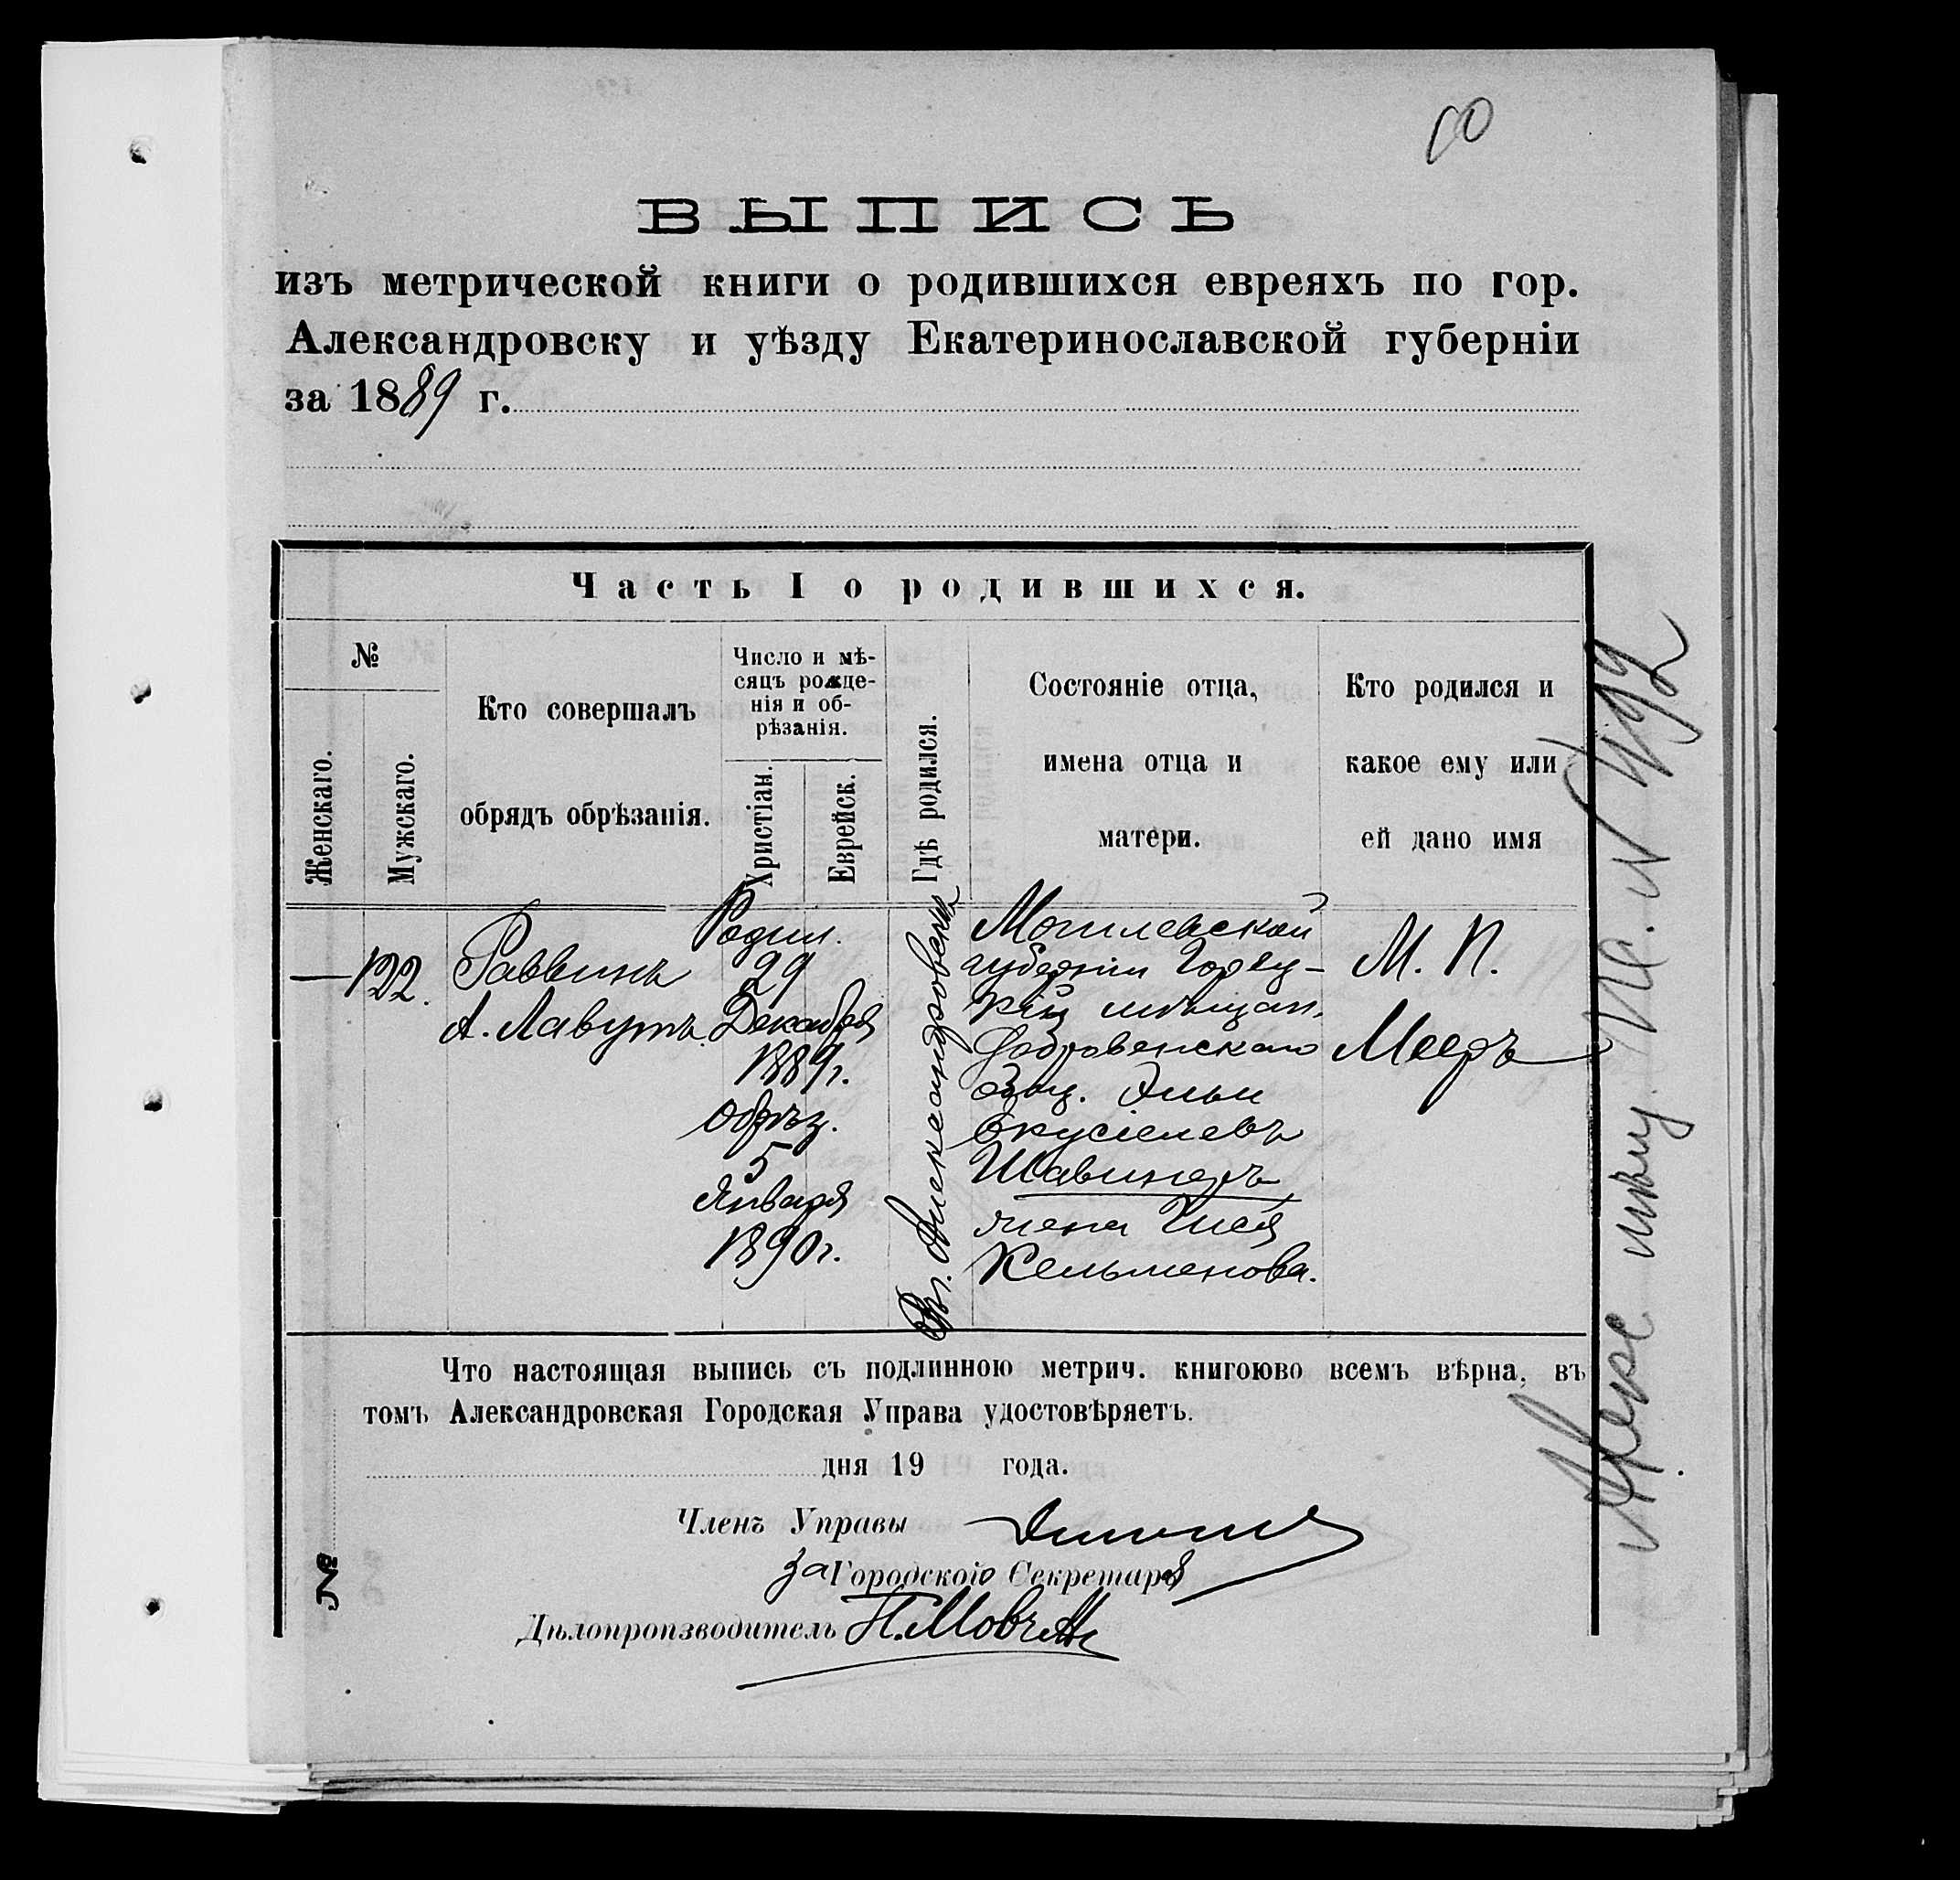 60
ВЫПИСЬ
изъ метрической книги о родившихся евреяхъ по гор.
Александровску и уѣзду Екатеринославской губерніи
за 1889 г.
Часть I о родившихся.
№
Женскаго.
Мужскаго.
Кто совершалъ
обрядъ обрѣзанія.
Число и мѣ-
сяцъ рожде-
нія и об-
рѣзанія.
Христіан.
Еврейск.
Гдѣ родился.
Состояніе отца,
имена отца и
матери.
Кто родился и
какое ему или
ей дано имя
— 122.
Раввинъ
А. Лавутъ.
Родил.
29
Декабря
1889 г.
Обрѣз.
5
Января
1890 г.
Въ г. Александровскѣ
Могилевской
губерніи Горец-
кій мѣщан.
Добровенскаго
Общ. Эльи
Екусіелевъ
Шавинеръ
жена Шея
Кельманова.
М. П.
Мееръ
Что настоящая выпись съ подлинною метрич. книгоюво всемъ вѣрна, въ
томъ Александровская Городская Управа удостовѣряетъ.
дня 19 года.
Членъ Управы
За Городского Секретаря
Дѣлопроизводитель
№